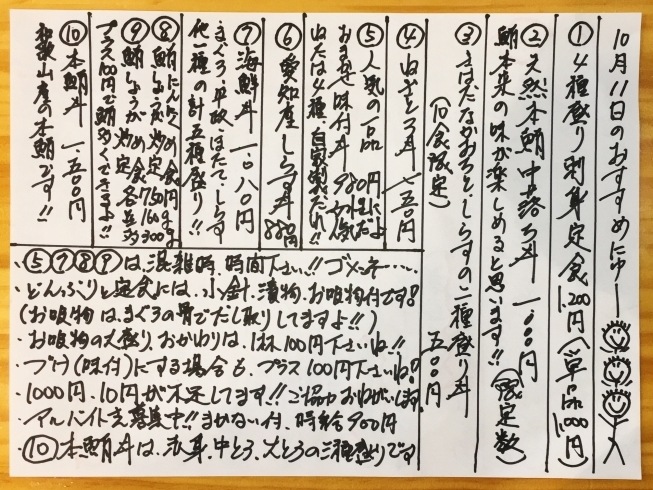 10月11日のおすすめにゅー
① 4種盛り刺身定食1,200円(単品1,000円)
② 天然本鮪中落ち丼 一.〇〇〇円
鮪本来の味が楽しめると思います!!(限定数)
③ きはだなかおちとしらすの二種盛り丼
(10食限定) 五〇〇円
④ ねぎとろ丼 七五〇円
⑤ 人気の一品
おまかせ味付丼 980円
ねたは4種、自家製だれ!!
⑥ 愛知産しらす丼 880円
⑦ 海鮮丼 一.〇八〇円
まぐろ、平政、ほたて、しらす
他一種の計五種盛り!!
⑧ 鮪にんにく炒め定食
⑨ 鮪しょうが炒め定食
プラス100円で鮪多くできますよ!!
⑩ 本鮪丼 一.五〇〇円
和歌山産の本鮪です!!
・⑤⑦⑧⑨は、混雑時、時間下さい!!ゴメンネー....
・どんぶりと定食には、小針、漬物、お吸物付です!
(お吸物は、まぐろの骨でだし取りしてますよ!!)
・お吸物の大盛り、おかわりは、1杯100円下さいね!!
・づけ(味付)にする場合も、プラス100円下さいね!
・1000円、10円が不足してます!!ご協力おねがいします。
・アルバイトさん募集中!!まかない付、時給900円
・⑩本鮪丼は、赤身、中とろ、大とろの三種盛りです